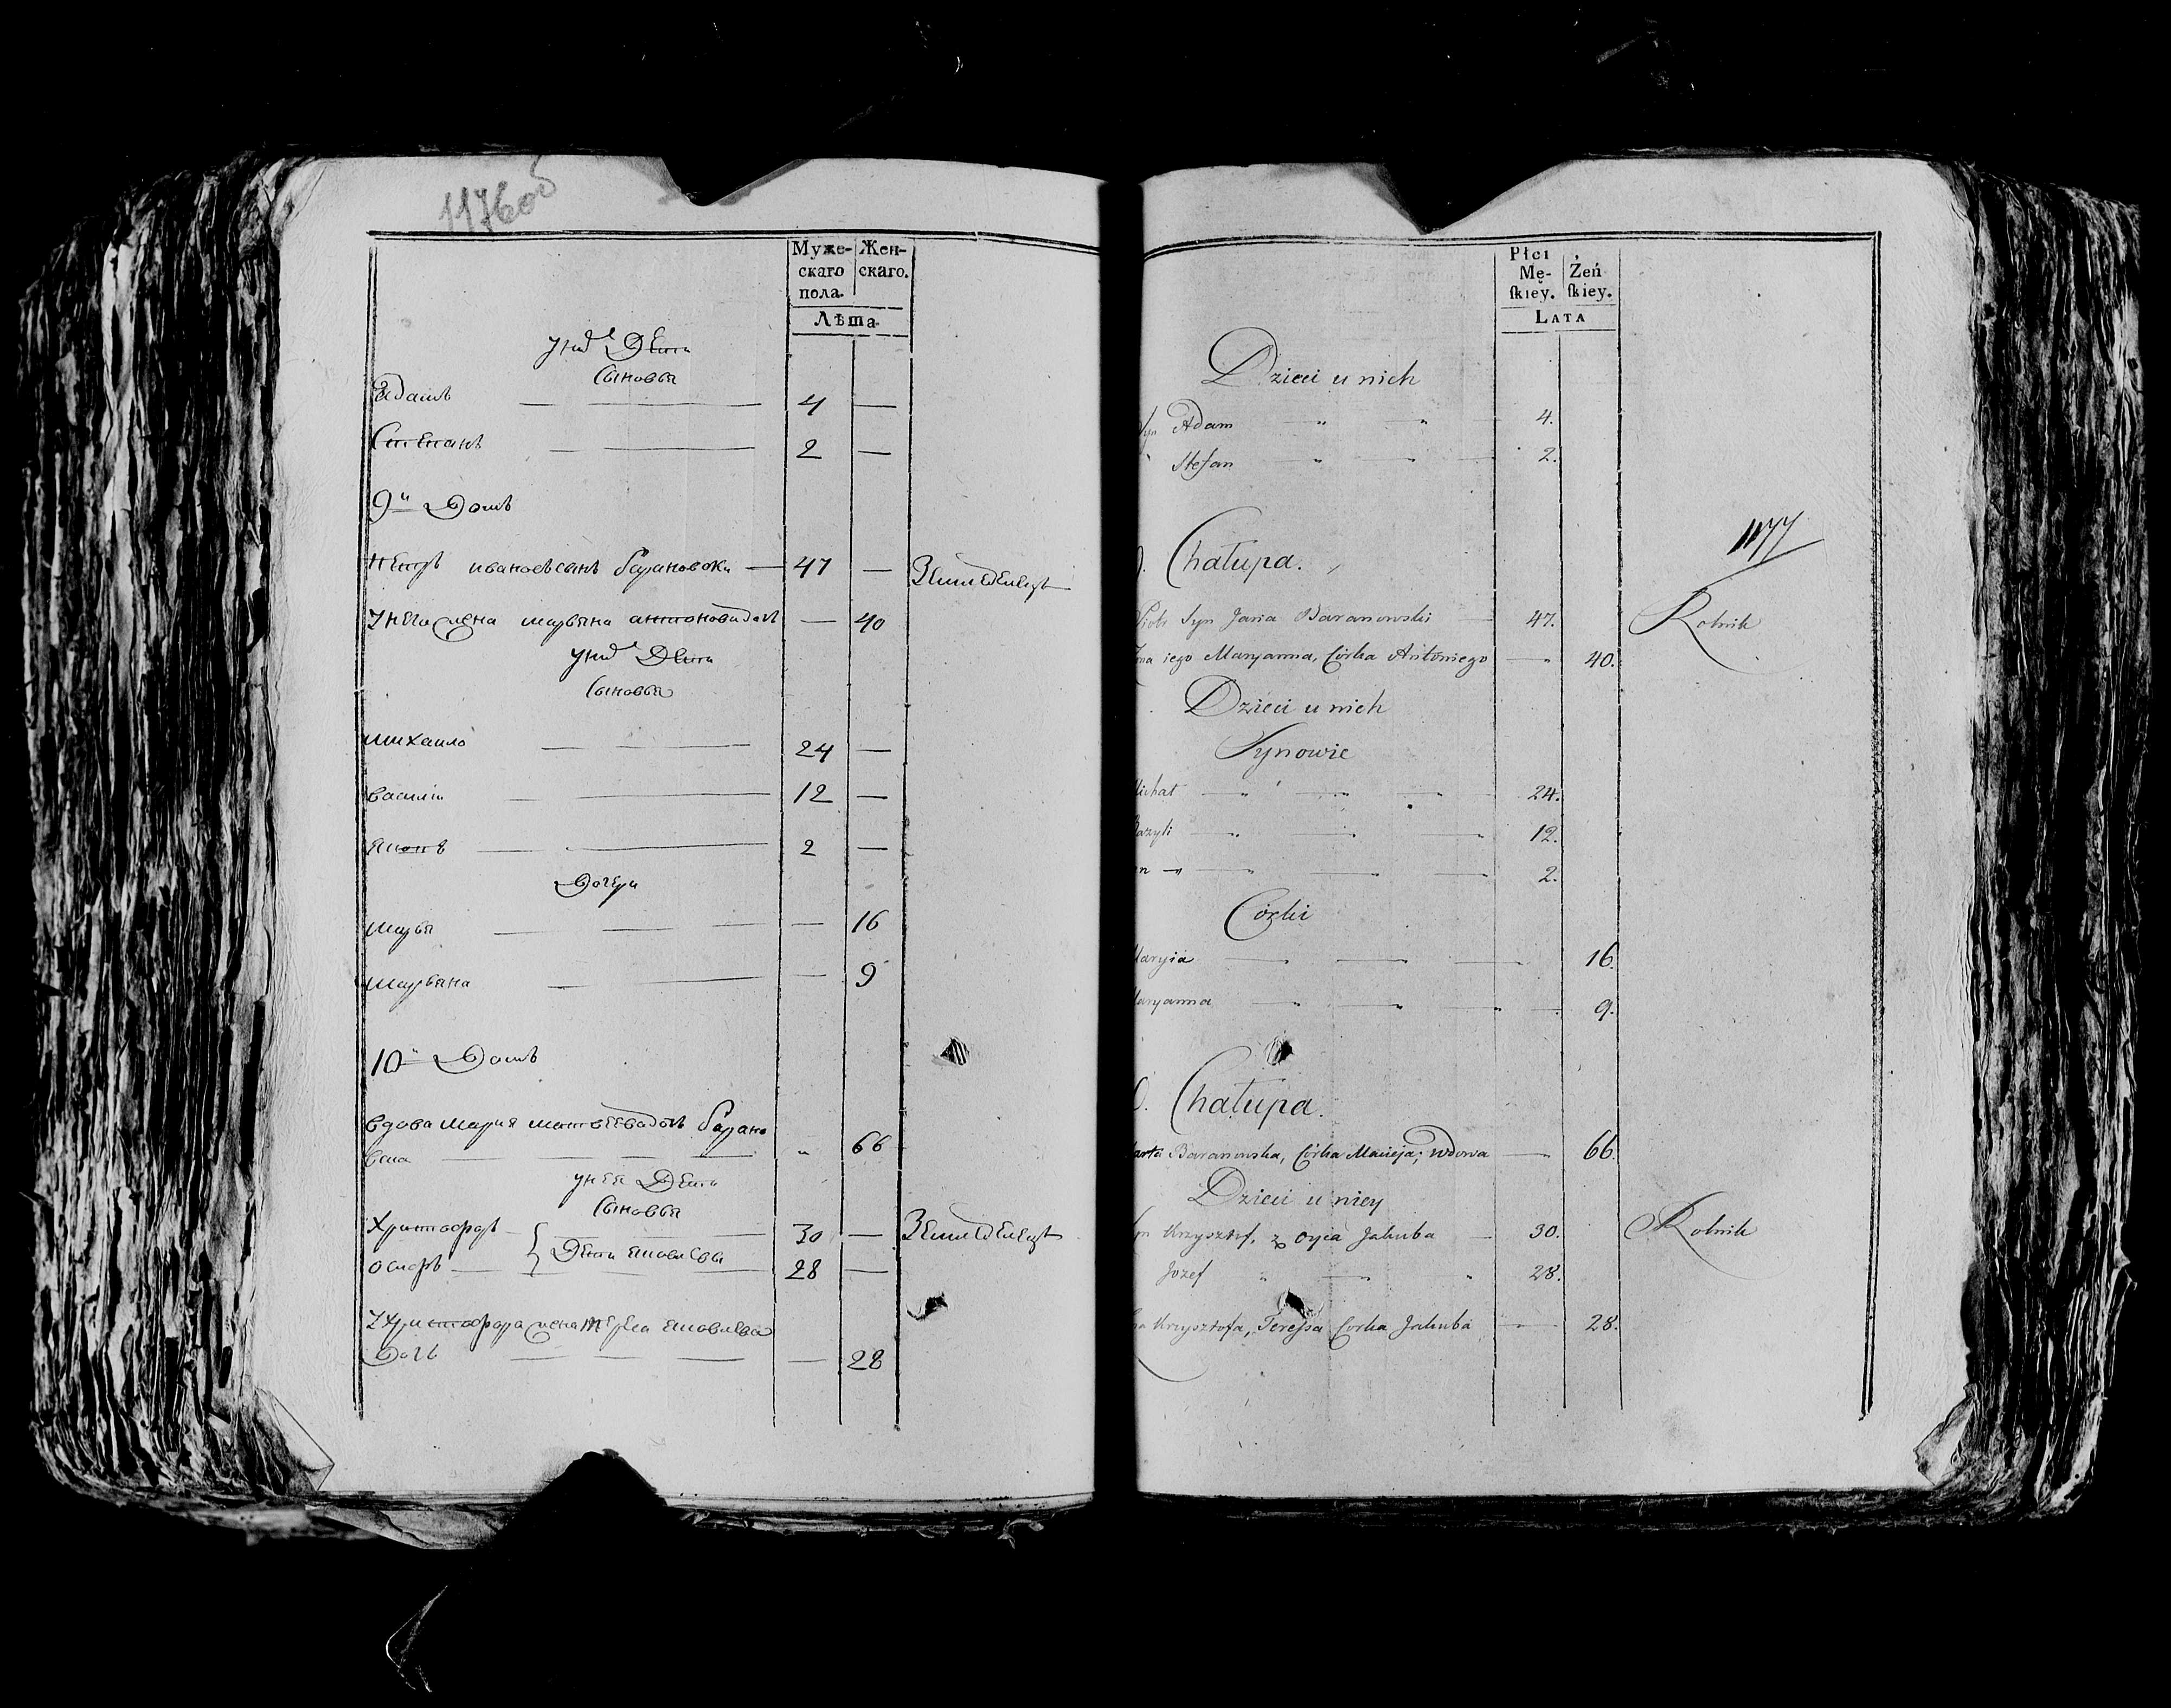 1176об
Муже- Жен-
скаго скаго.
пола.
Лѣта
У них Дети
Сыновья
Адамъ — — 4 —
Степанъ — — 2 —
9й Домъ
Петръ ивановъ сынъ барановски — 47 — Земледелецъ
У него жена марьяна антонова дочь — 40
У них Дети
Сыновья
михаило — — 24 —
василии — — 12 —
— — 2 —
Дочери
марья — — — — 16
марьяна — — — 9
10й Домъ
вдова мария матвеева дочь барано
вска — — — „ 66
у нея Дети
Сыновья
Христофоръ — 30 — Земледелецъ
осифъ — { Дети яковлевы — 28 —
У христофора жена тереса яковлева
Дочь — — — — 28
Płci
Mę- Żeń
ſkiey. ſkiey.
LATA
Dzieci u nich
Syn Adam „ „ 4.
Stefan „ — 2.
1177
Chałupa.
Piotr Syn Jana Baranowski — 47. Rolnik
Żona iego Maryanna, Córka Antoniego — 40.
Dzieci u nich
Synowie
Michał — „ — 24.
Bazyli — „ — 12.
n — — — — 2.
Córki
Maryia — — — 16.
Maryanna — „ — „ — 9.
Chałupa.
arta Baranowska, Córka Macieja; wdowa — 66.
Dzieci u niey
Syn Krzysztof, z oyca Jakuba — 30. Rolnik
Jozef „ — „ 28.
Krzysztofa, Teressa Corka Jakuba — 28.